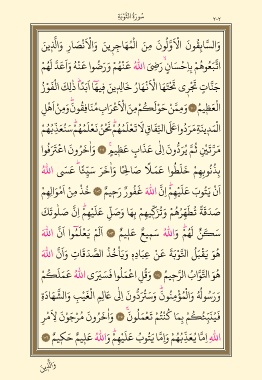 سُورَةُ التَّوْبَةِ
٢٠٢
وَالسَّابِقُونَ الْاَوَّلُونَ مِنَ الْمُهَاجِرٖينَ وَالْاَنْصَارِ وَالَّذٖينَ
اتَّبَعُوهُمْ بِاِحْسَانٍ رَضِىَ اللّٰهُ عَنْهُمْ وَرَضُوا عَنْهُ وَاَعَدَّ لَهُمْ
جَنَّاتٍ تَجْرٖى تَحْتَهَا الْاَنْهَارُ خَالِدٖينَ فٖيهَا اَبَدًا ذٰلِكَ الْفَوْزُ
الْعَظٖيمُ ۞ وَمِمَّنْ حَوْلَكُمْ مِنَ الْاَعْرَابِ مُنَافِقُونَ وَمِنْ اَهْلِ
الْمَدٖينَةِ مَرَدُوا عَلَى النِّفَاقِ لَا تَعْلَمُهُمْ نَحْنُ نَعْلَمُهُمْ سَنُعَذِّبُهُمْ
مَرَّتَيْنِ ثُمَّ يُرَدُّونَ اِلٰى عَذَابٍ عَظٖيمٍ ۞ وَاٰخَرُونَ اعْتَرَفُوا
بِذُنُوبِهِمْ خَلَطُوا عَمَلًا صَالِحًا وَاٰخَرَ سَيِّئًا عَسَى اللّٰهُ
اَنْ يَتُوبَ عَلَيْهِمْ اِنَّ اللّٰهَ غَفُورٌ رَحٖيمٌ ۞ خُذْ مِنْ اَمْوَالِهِمْ
صَدَقَةً تُطَهِّرُهُمْ وَتُزَكّٖيهِمْ بِهَا وَصَلِّ عَلَيْهِمْ اِنَّ صَلٰوتَكَ
سَكَنٌ لَهُمْ وَاللّٰهُ سَمٖيعٌ عَلٖيمٌ ۞ اَلَمْ يَعْلَمُوا اَنَّ اللّٰهَ
هُوَ يَقْبَلُ التَّوْبَةَ عَنْ عِبَادِهٖ وَيَاْخُذُ الصَّدَقَاتِ وَاَنَّ اللّٰهَ
هُوَ التَّوَّابُ الرَّحٖيمُ ۞ وَقُلِ اعْمَلُوا فَسَيَرَى اللّٰهُ عَمَلَكُمْ
وَرَسُولُهُ وَالْمُؤْمِنُونَ وَسَتُرَدُّونَ اِلٰى عَالِمِ الْغَيْبِ وَالشَّهَادَةِ
فَيُنَبِّئُكُمْ بِمَا كُنْتُمْ تَعْمَلُونَ ۞ وَاٰخَرُونَ مُرْجَوْنَ لِاَمْرِ
اللّٰهِ اِمَّا يُعَذِّبُهُمْ وَاِمَّا يَتُوبُ عَلَيْهِمْ وَاللّٰهُ عَلٖيمٌ حَكٖيمٌ ۞
وَالَّذٖينَ